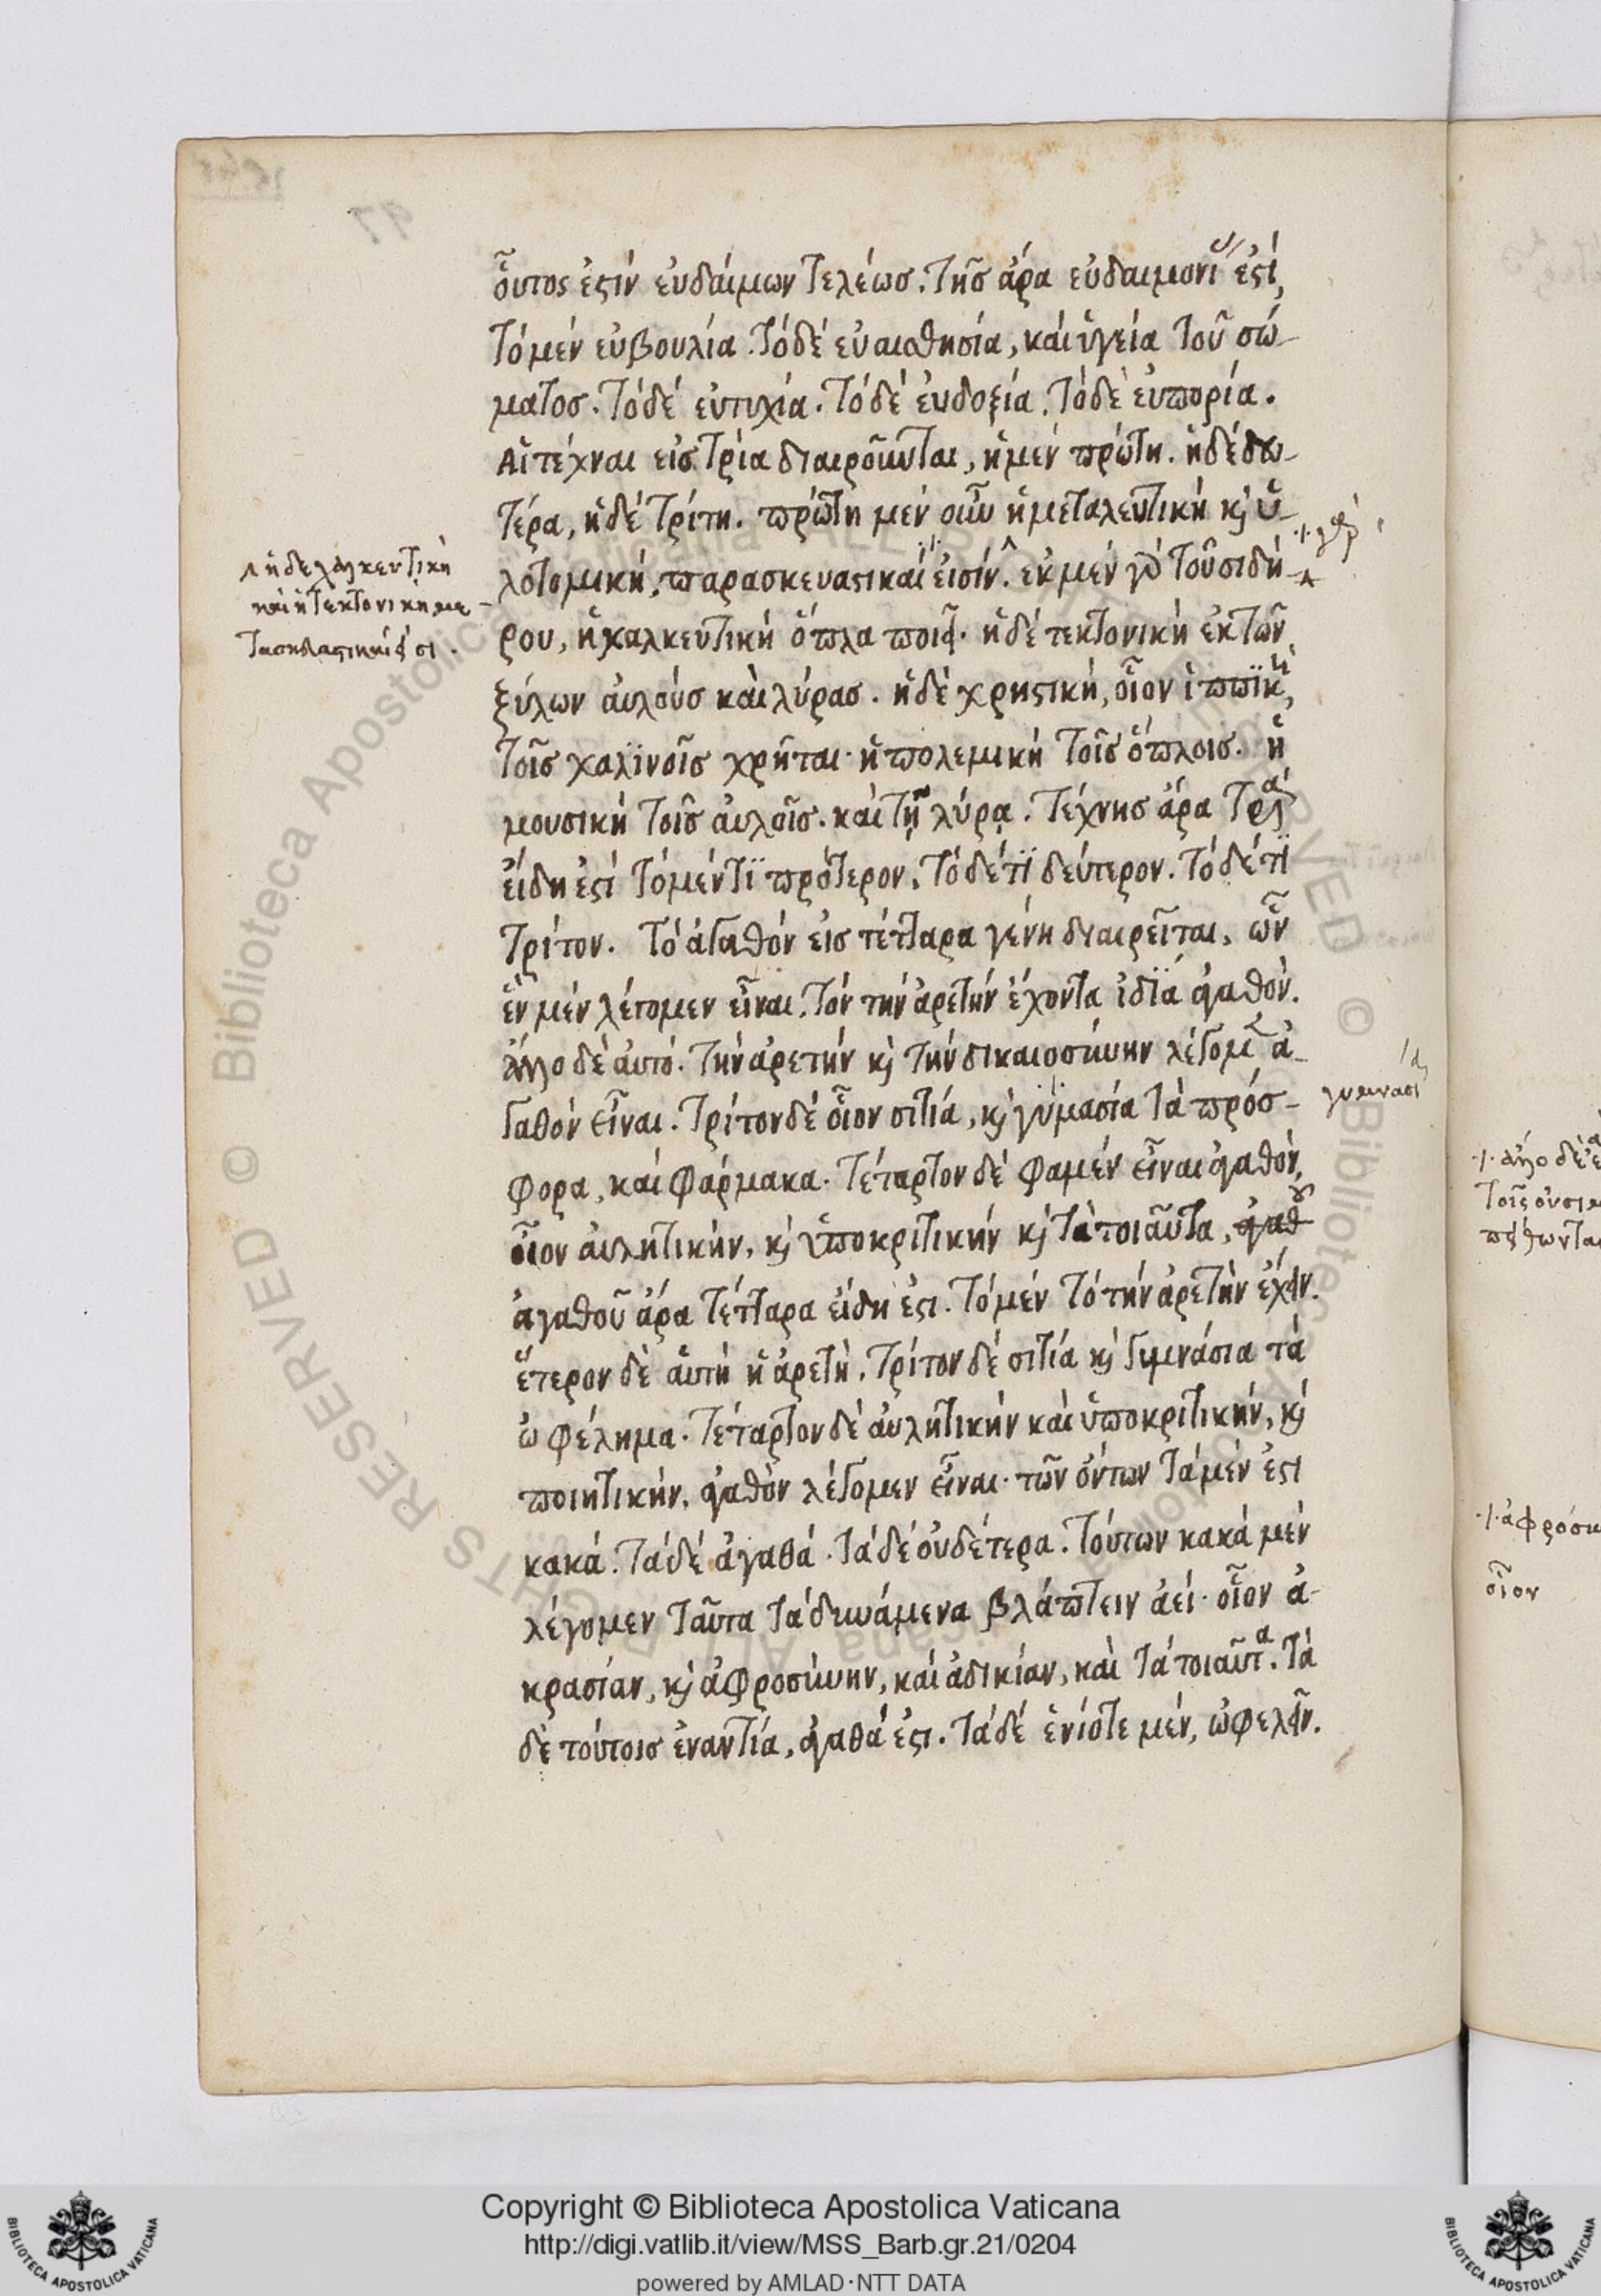 οὗτος ἐστίν ἐυδάιμων τελέωσ. τῆσ ἄρα εὐδαιμονί ἐστί,
τὸ μέν εὐβουλία. τὸ δέ εὐαισθησία, καὶ ὑγεία τοῦ σώ-
ματοσ. τὸ δέ εὐτυχία. τὸ δέ ἐυδοξία. τὸ δὲ ἐυπορία.
Αἱ τέχναι εἰσ τρία διαιροῦνται, ἡ μέν πρώτη. ἡ δέ δευ-
τέρα, ἡ δέ τρίτη. πρώτη μέν οὖν ἡ μεταλευτική κỳ ὑ-
λοτομική, παρασκευαστικαί ἐισίν. ἐκ μέν γὰρ τοῦ σιδή-
ρου, ἡ χαλκευτική ὅπλα ποιεῖ. ἡ δέ τεκτονική ἐκ τῶν
ξύλων ἀυλούσ καὶ λύρασ. ἡ δὲ χρηστική, οἷον ἱππϊκή,
τοῖσ χαλϊνοῖσ χρῆται. ἡ πολεμική τοῖσ ὅπλοισ. ἡ
μουσική τοῖσ ἀυλοῖσ. καὶ τῇ λύρᾳ. τέχνησ ἄρα τρία
ἐίδη ἐστί τὸ μέν τϊ πρότερον. τὸ δέ τϊ δεύτερον. τὸ δέ τϊ
τρίτον. τὸ ἀγαθόν εἰσ τέτταρα γένη διαιρεῖται, ὧν
ἕν μέν λέγομεν εἶναι. τὸν τὴν ἀρετήν ἔχοντα ἰδίᾳ ἀγαθόν.
ἄλλο δὲ ἀυτό. τὴν ἀρετήν κỳ τὴν δικαιοσύνην λέγομεν ἀ-
γαθόν εἶναι. τρίτον δέ οἷον σιτία, κỳ γυμασία τὰ πρόσ-
φορα, καὶ φάρμακα. τέταρτον δέ φαμέν εἶναι ἀγαθόν,
οἷον ἀυλητικήν, κỳ ὑποκριτικήν κỳ τὰ τοιαῦτα, ἀγαθοῦ
ἀγαθοῦ ἄρα τέτταρα ἐίδη ἐστι. τὸ μέν τὸ τὴν ἀρετὴν ἔχειν.
ἕτερον δὲ ἀυτὴ ἡ ἀρετὴ. τρίτον δέ σιτία κỳ γυμνάσια τὰ
ὠφέλημα. τέταρτον δὲ ἀυλητικήν καὶ ὑποκριτικήν, κỳ
ποιητικήν, ἀγαθόν λέγομεν εἶναι. τῶν ὄντων τὰ μέν ἐστι
κακά. τὰ δέ ἀγαθά. τὰ δέ οὐδέτερα. τούτων κακά μέν
λέγομεν ταῦτα τὰ δυνάμενα βλάπτειν ἀεί. οἷον ἀ-
κρασίαν, κỳ ἀφροσύνην, καὶ ἀδικίαν, καὶ τὰ τοιαῦτα. τὰ
δὲ τούτοισ ἐναντία, ἀγαθά ἐστι. τὰ δέ ἐνίοτε μέν, ὠφελεῖν.
ἡ δε χαλκευτική
καὶ ἡ τεκτονικὴ με-
τασκευαστικαί εἰσι.
γὰρ
γυμνασί
ἄλλο δὲ
τοῖς οὐσι
οἷον